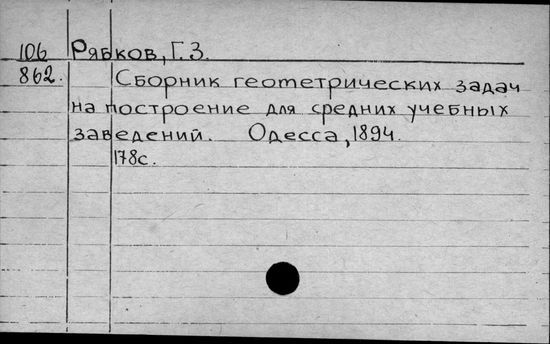 106 Рябков, Г. З.
862. Сборник геометрических задач
на построение для средних учебных
заведений. Одесса, 1894.
178с.